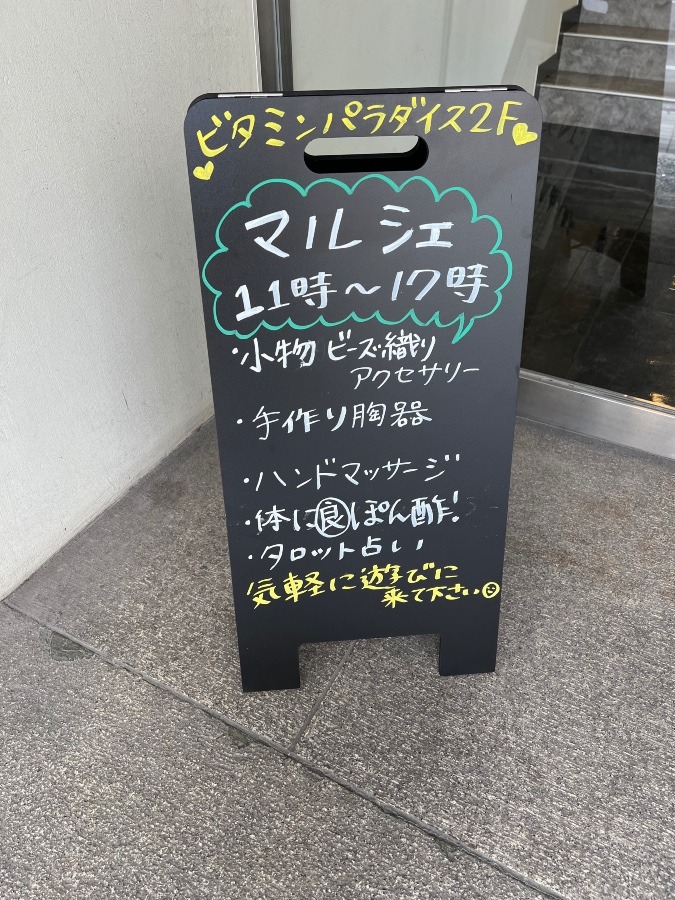 ビタミンパラダイス2F
マルシェ
11時〜17時
・小物 ビーズ織り
アクセサリー
・手作り陶器
・ハンドマッサージ
・体に良ぽん酢!
・タロット占い
気軽に遊びに
来て下さい